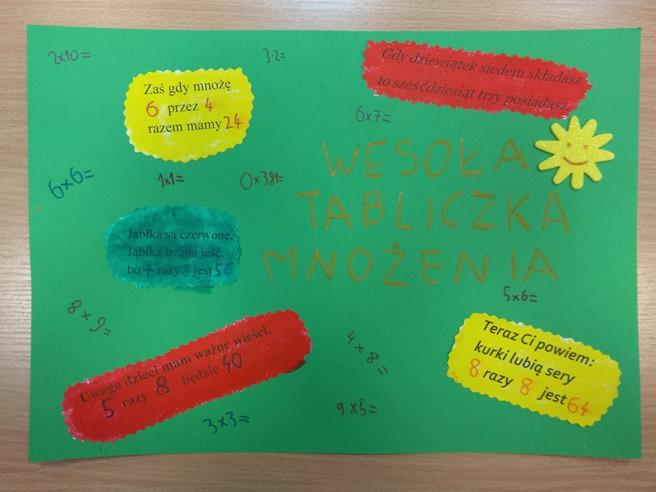 2x10=
3·2=
Gdy dziewiątek siedem składasz
to sześćdziesiąt trzy posiadasz.
Zaś gdy mnożę
6 przez 4
razem mamy 24
6x7=
WESOŁA
TABLICZKA
MNOŻENIA
6x6=
1x1=
0x381=
Jabłka są czerwone,
Jabłka trzeba jeść,
bo 7 razy 8 jest 56
5x6=
8x9=
Uwaga dzieci mam ważne wieści,
5 razy 8 będzie 40
4x8=
Teraz Ci powiem:
kurki lubią sery
8 razy 8 jest 64
3x3=
9x5=